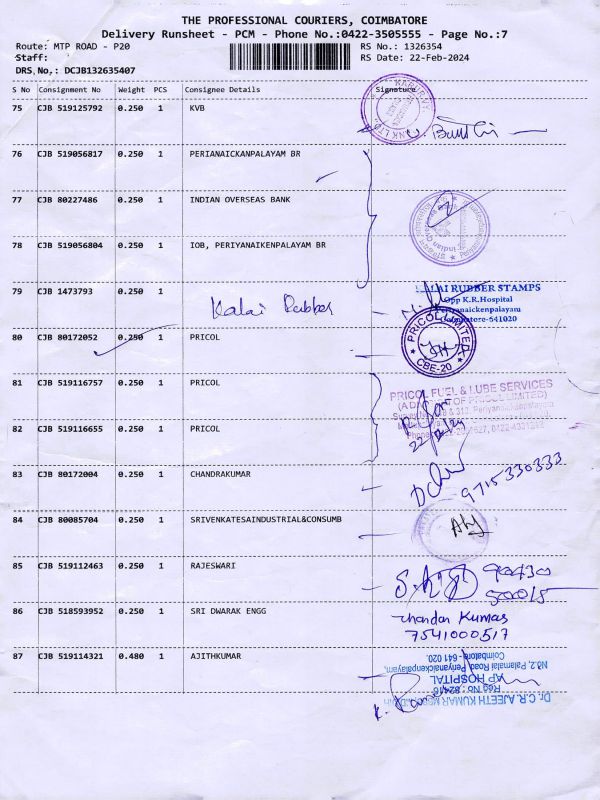 THE PROFESSIONAL COURIERS, COIMBATORE
Delivery Runsheet - PCM - Phone No.:0422-3505555 - Page No.:7
Route: MTP ROAD - P20 RS No.: 1326354
Staff: RS Date: 22-Feb-2024
DRS No.: DCJB132635407
S No Consignment No Weight PCS Consignee Details Signature
75 CJB 519125792 0.250 1 KVB
76 CJB 519056817 0.250 1 PERIANAICKANPALAYAM BR
77 CJB 80227486 0.250 1 INDIAN OVERSEAS BANK
78 CJB 519056804 0.250 1 IOB, PERIYANAIKENPALAYAM BR
79 CJB 1473793 0.250 1 Kalai Rubber
RUBBER STAMPS
Opp K.R.Hospital
Periyanaickenpalayam
Coimbatore-641020
80 CJB 80172052 0.250 1 PRICOL
PRICOL LIMITED
CBE-20
81 CJB 519116757 0.250 1 PRICOL
PRICOL FUEL & LUBE SERVICES
OF PRICOL LIMITED)
82 CJB 519116655 0.250 1 PRICOL
83 CJB 80172004 0.250 1 CHANDRAKUMAR
9715330333
84 CJB 80085704 0.250 1 SRIVENKATESAINDUSTRIAL&CONSUMB
85 CJB 519112463 0.250 1 RAJESWARI
86 CJB 518593952 0.250 1 SRI DWARAK ENGG
chandan Kumar
7541000517
87 CJB 519114321 0.480 1 AJITHKUMAR
Dr. C.R. AJEETH KUMAR
AP HOSPITAL
No.2, Palamalai Road, Periyanaickenpalayam,
Coimbatore - 641 020.